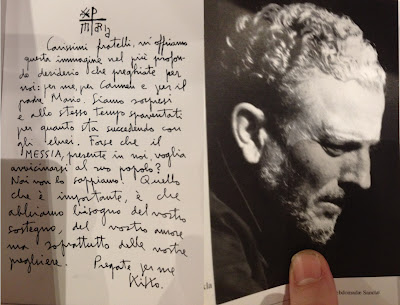 XP
MARIA
Carissimi fratelli, vi offriamo
questa immagine nel più profon-
do desiderio che preghiate per
noi: per me, per Carmen e per il
padre Mario. Siamo sorpresi
e allo stesso tempo spaventati
per quanto sta succedendo con
gli ebrei. Forse che il
MESSIA, presente in noi, voglia
avvicinarsi al suo popolo?
Noi non lo sappiamo! Quello
che è importante, è che
abbiamo bisogno del vostro
sostegno, del vostro amore
ma soprattutto delle vostre
preghiere.
Pregate per me
Kiko.